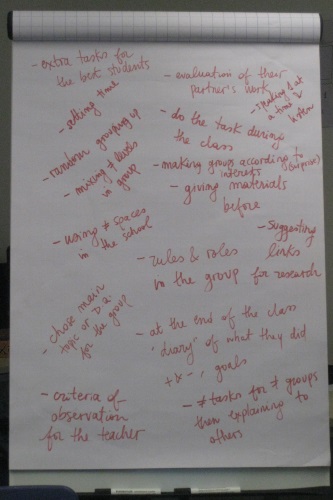 - extra tasks for
the best students
- setting time
- random grouping up
- mixing ≠ levels
in group
- using ≠ spaces
in the school
- chose main
topic or
for the group
- criteria of
observation
for the teacher
- evaluation of their
partner's work
at
a time
- do the task during
the class
- making groups according to
interests
- giving materials
before
- suggesting
links
- rules & roles
in the group for research
- at the end of the class
"diary" of what they did
+ & -, goals
- ≠ tasks for ≠ groups
then explaining to
others